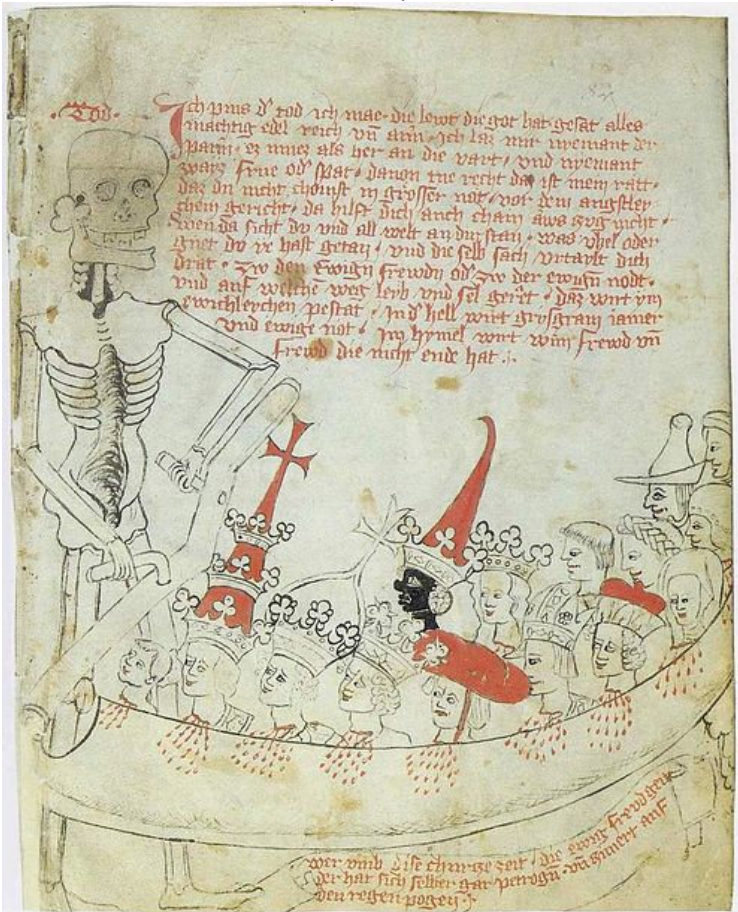 ·Tod·
Ich pins d' tod ich mae die lewt die got hat gesat alles
machtig edel reich vn̄ arm · Ich laz mir nyemant der
parm · ez muez als her an die vart · vnd nyemant
zwarz frue od' spat · dauon tue recht daz ist mein ratt ·
daz du nicht chömst in grosser not · vor dem angstley
chem gericht · da hilft dich auch chain aws zug nicht ·
wen da sicht dv vnd all welt an dir stan · was vbel oder
guet dv ye hast getan · vnd die selb sach vrtaylt dich
drat · zw den Ewign frewdn od' zw der ewign nodt ·
vnd auf welche weg leyb vnd sel geret · daz wirt ym
ewichleychen pestat · In d' hell wirt grysgram iamer
vnd ewige not · Im hymel wirt wūn frewd vn̄
frewd die nicht ende hat ·
wer vmb dise churze zeit · die ewig frewd geit
der hat sich selber gar petrogn̄ · vn̄ zimert auf
den regen pogen ·